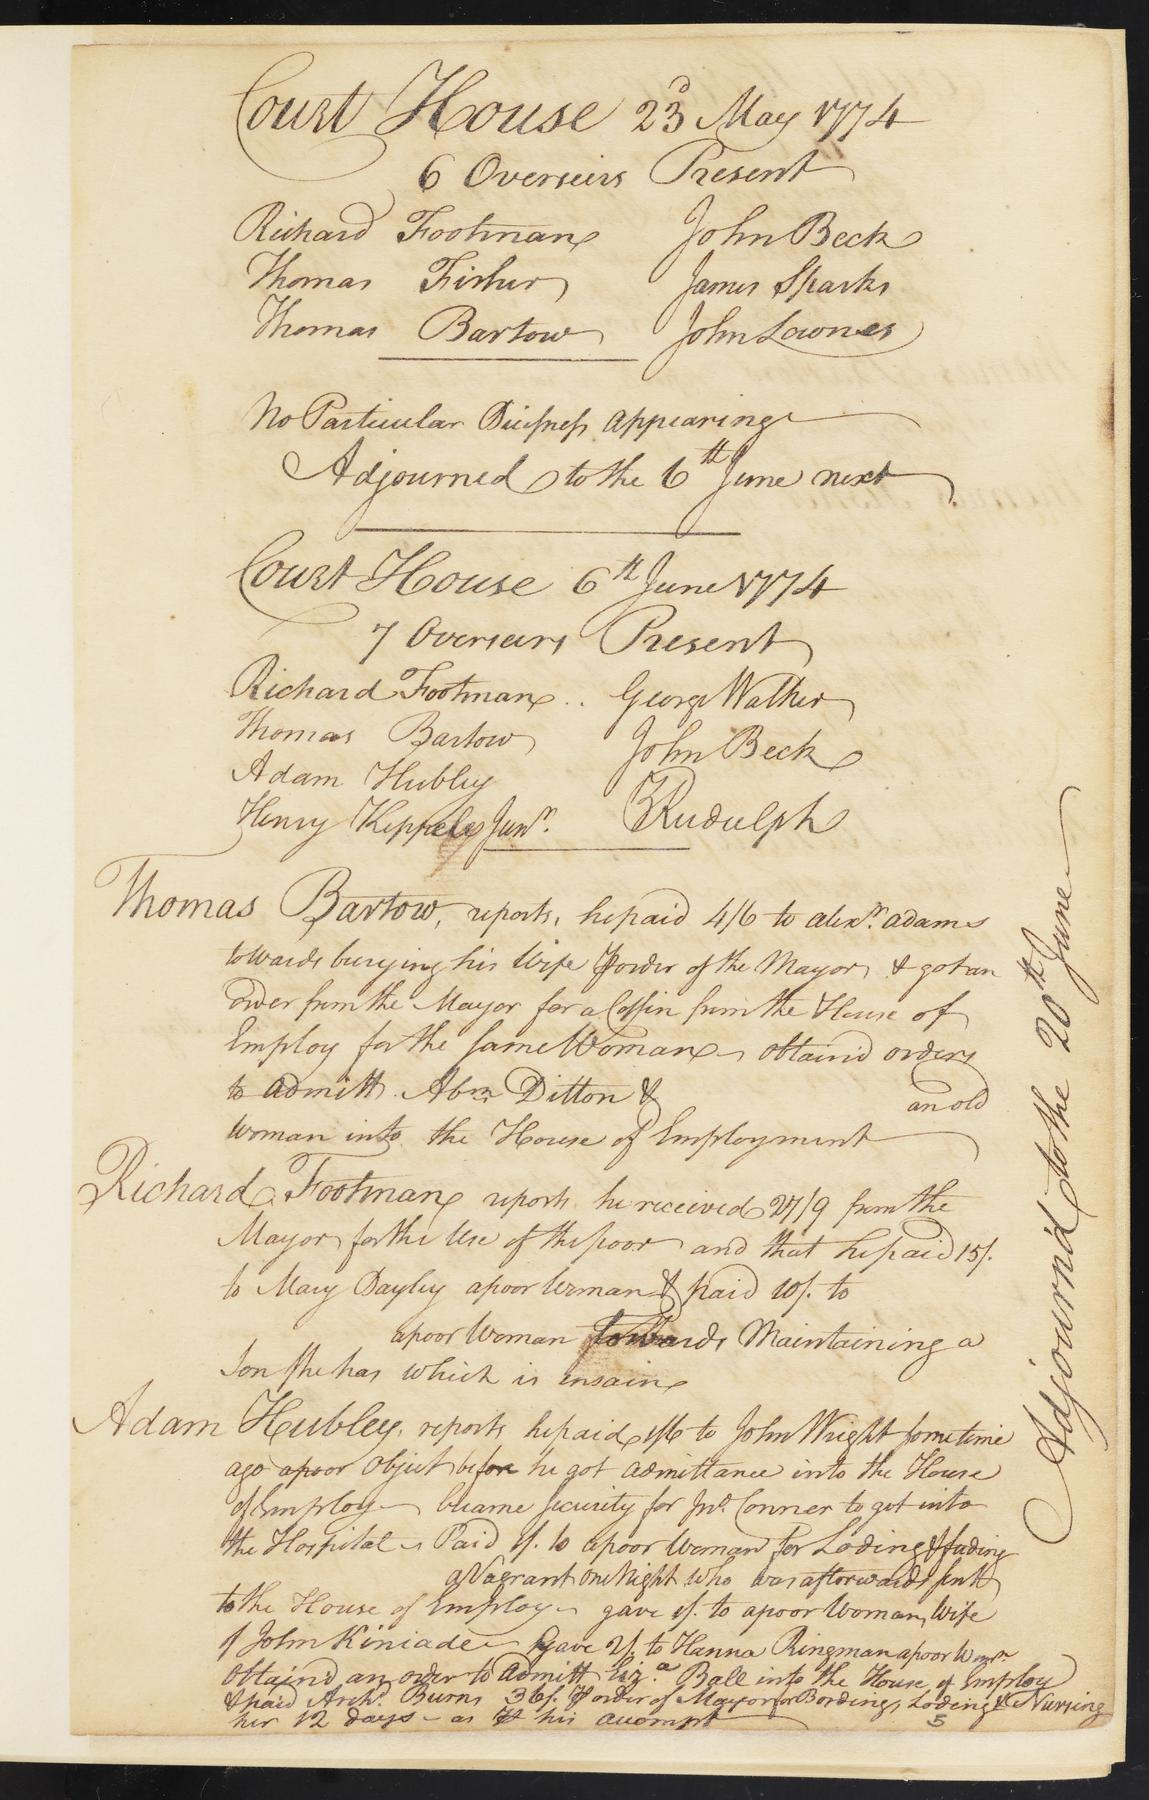 Court House 23d May 1774
6 Overseirs Present
Richard Footman John Beck
Thomas Fisher James Sparks
Thomas Bartow John Lownes
No Particular Buisness appearing
Adjourned to the 6th June next
Court House 6th June 1774
7 Overseirs Present
Richard Footman .. George Walker
Thomas Bartow John Beck
Adam Hubley
Henry Keppele Junr. Rudulph
Thomas Bartow, reports, he paid 4/6 to alexr. adams
towards burying his Wife ⅌ order of the Mayor, & got an
order from the Mayor for a Coffin from the House of
Employ for the Same Woman obtain'd orders
to admitt Abm Ditton & an old
Woman into the House of Employment
Richard Footman reports he received 27/9 from the
Mayor for the Use of the poor and that he paid 15/.
to Mary Dayley a poor Woman & paid 10/. to
a poor Woman towards Maintaining a
Son she has which is insain
Adam Hubley, reports he paid 1/6 to John Wright sometime
ago a poor Object before he got admittance into the House
of Employ became Security for Jno. Conner to get into
the Hospital Paid 1/. to a poor Woman for Loding & feeding
a Vagrant one Night who was afterwards sent
to the House of Employ gave 1/. to a poor Woman, Wife
of John Kiniade Gave 2/. to Hanna Ringman a poor Womn
Obtain'd an order to admitt Liz.a Ball into the House of Employ
& paid Archd. Burns 36/. ⅌ order of Mayor for Bording, Loding & Nursing
her 12 days as ⅌ his accompt
5
Adjourn'd to the 20th June